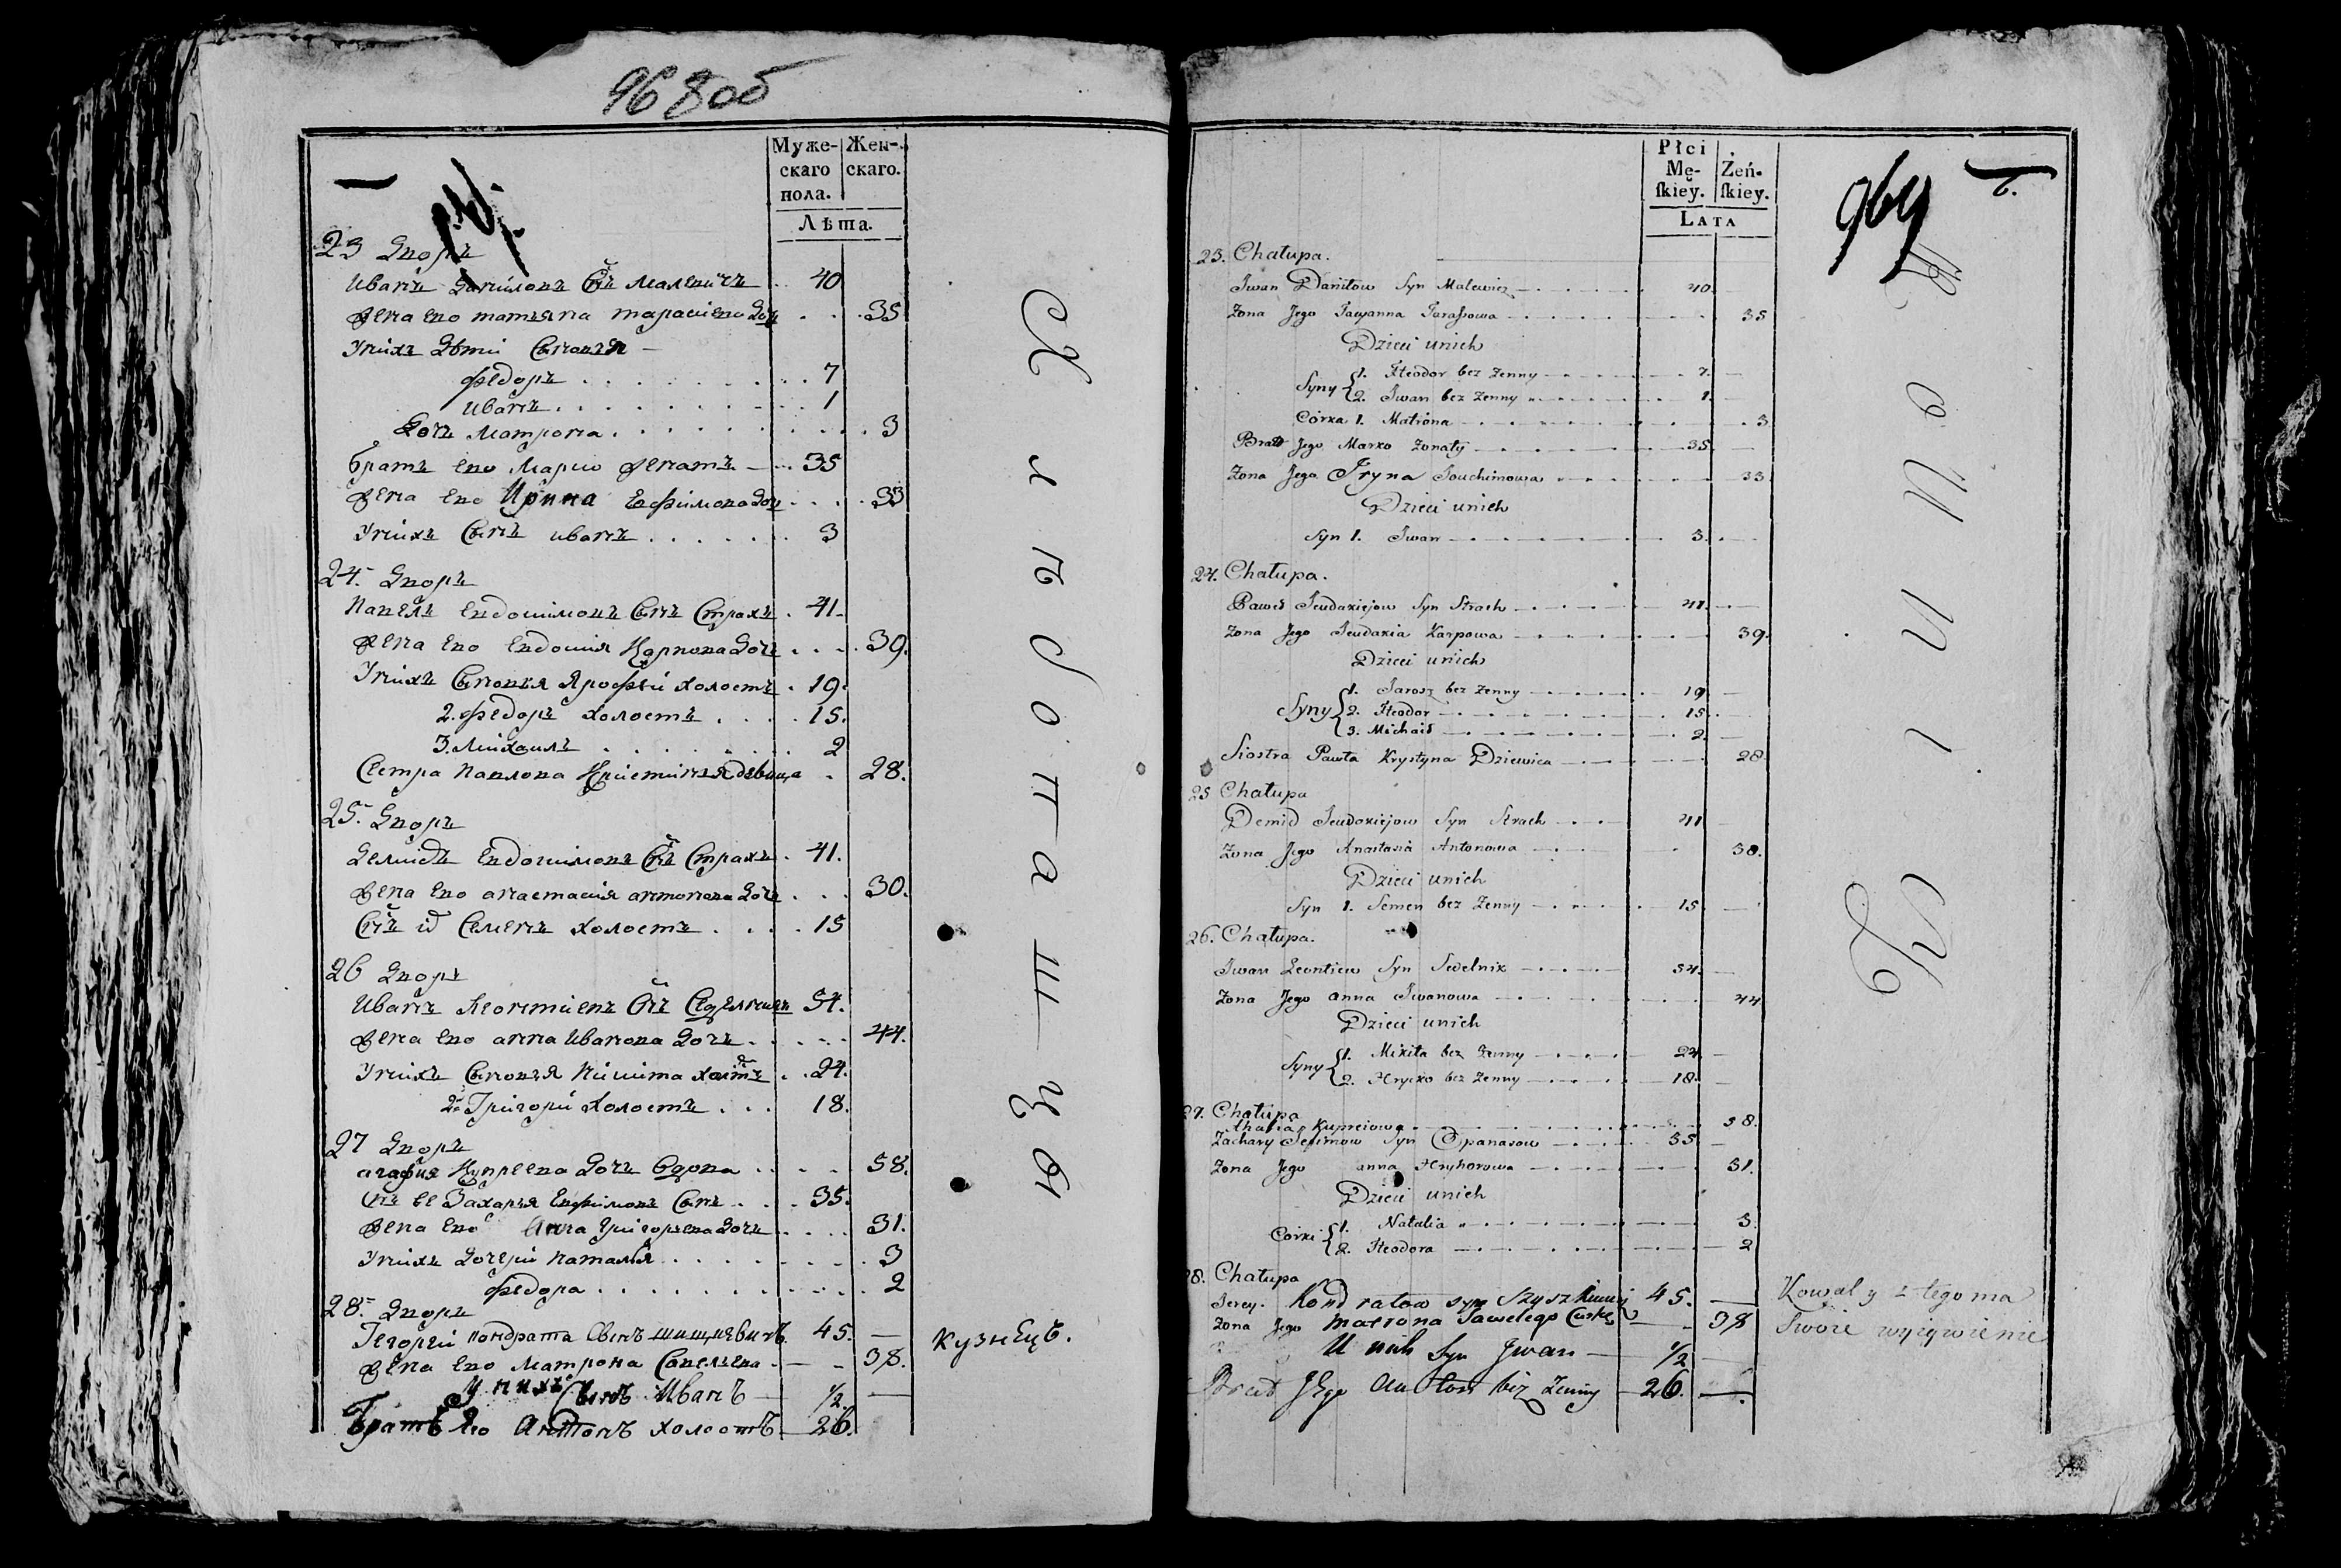 968 об
Муже-
скаго
пола.
Жен-
скаго.
Лѣта.
23 Дворъ
Иванъ Даниловъ Снъ Малевичъ . . 40
Жена его татьяна тарасиева Дочь . . . 35
Унихъ Дѣти Сыновья —
федоръ . . . . . . . . . 7
иванъ . . . . . . . . . 1
Дочь Матрона . . . . . . . . . 3
братъ его Марко женатъ — . . 35
жена его Ирина Ефимова Дочь . . . . 33
Унихъ Сынъ иванъ . . . . . . . 3
24. Дворъ
Павелъ Евдокимовъ Сынъ Страхъ . 41.
жена его Евдокия Карпова Дочь . . . . 39.
Унихъ Сыновья Ярофѣй холостъ . 19.
2. федоръ холостъ . . . . 15.
3. Михаилъ . . . . . . . . . 2
Сестра Павлова Кристиния девица . 28.
25. Дворъ
Демидъ Евдокимовъ Снъ Страхъ . 41.
жена его анастасия антонова Дочь . . . 30.
Снъ Семенъ холостъ . . . . 15
26 Дворъ
Иванъ Леонтиевъ Снъ Седельникъ 54.
жена его анна Иванова Дочь . . . . . 44.
Унихъ Сыновья Никита холостъ . . 24.
2. Григорий холостъ . . . 18.
27 Дворъ
агафия Купреева Дочь вдова . . . . 58.
Снъ ее Захарья Евфимовъ Сынъ . . . 35.
жена его Анна Григорьева Дочь . . . . 31.
Унихъ Дочери наталья . . . . . . . 3
федора . . . . . . . . . . . 2
28. Дворъ
Георгий кондрата Сынъ шищкевичъ. 45. —
жена его Матрона Савельева . — - 38.
у нихъ Сынъ Иванъ — 1/2 —
Братъ Его Антонъ холостъ — 26.
Хлѣбопашцы
кузнецъ.
Płci
Mę-
ſkiey.
Żeń-
ſkiey.
LATA
964
23. Chałupa.
Iwan Daniłow Syn Malewicz — . . . 40.
Zona Jego Tacyanna Tarasowa — . . . 35
Dzieci unich
Syny 1. Fteodor bez zenny — . . . 7. —
2. Iwan bez zenny . . . 1. —
Córka 1. Matrona — . . . 3
Brat Jego Marko Zonaty — . . . 35. —
Zona Jego Iryna Jouchimowa . . . 33
Dzieci unich
Syn 1. Iwan — . . . 3. —
24. Chałupa.
Paweł Jeudokiejow Syn Strach — . . . 41. —
Zona Jego Jeudakia Karpowa — . . . 39.
Dzieci unich
Syny 1. Jarosz bez zenny — . . . 19. —
2. Fteodor — . . . 15. —
3. Michaił — . . . 2. —
Siostra Pawła Krystyna Dziewica — . . . 28
25 Chałupa
Demid Jeudokiejow Syn Strach — . . . 41 —
Zona Jego Anastasia Antonowa — . . . 38.
Dzieci unich
Syn 1. Semen bez zenny — . . . 15. —
26. Chałupa.
Iwan Leontiew Syn Sedelnik — . . . 54. —
Zona Jego anna Iwanowa — . . . 44
Dzieci unich
Syny 1. Mikita bez zenny — . . . 24. —
2. Hrycko bez zenny — . . . 18. —
27. Chałupa
Ahafia Kupreiowa — . . . 58.
Zachary Jefimow Syn Opanasow — . . . 35 —
Zona Jego anna Hryhorowa — . . . 31.
Dzieci unich
Córki 1. Natalia . . . 3.
2. Fteodora — . . . 2
28. Chałupa
Jerey. Kondratow syn Szyszkiewicz 45. —
Zona Jego Matrona Sawelego Curka — . 38
U nich Syn Jwan — 1/2 —
Brat Jego Anton bez Zenny — 26. —
Kowal y z tego ma
Swoie wyżywienie